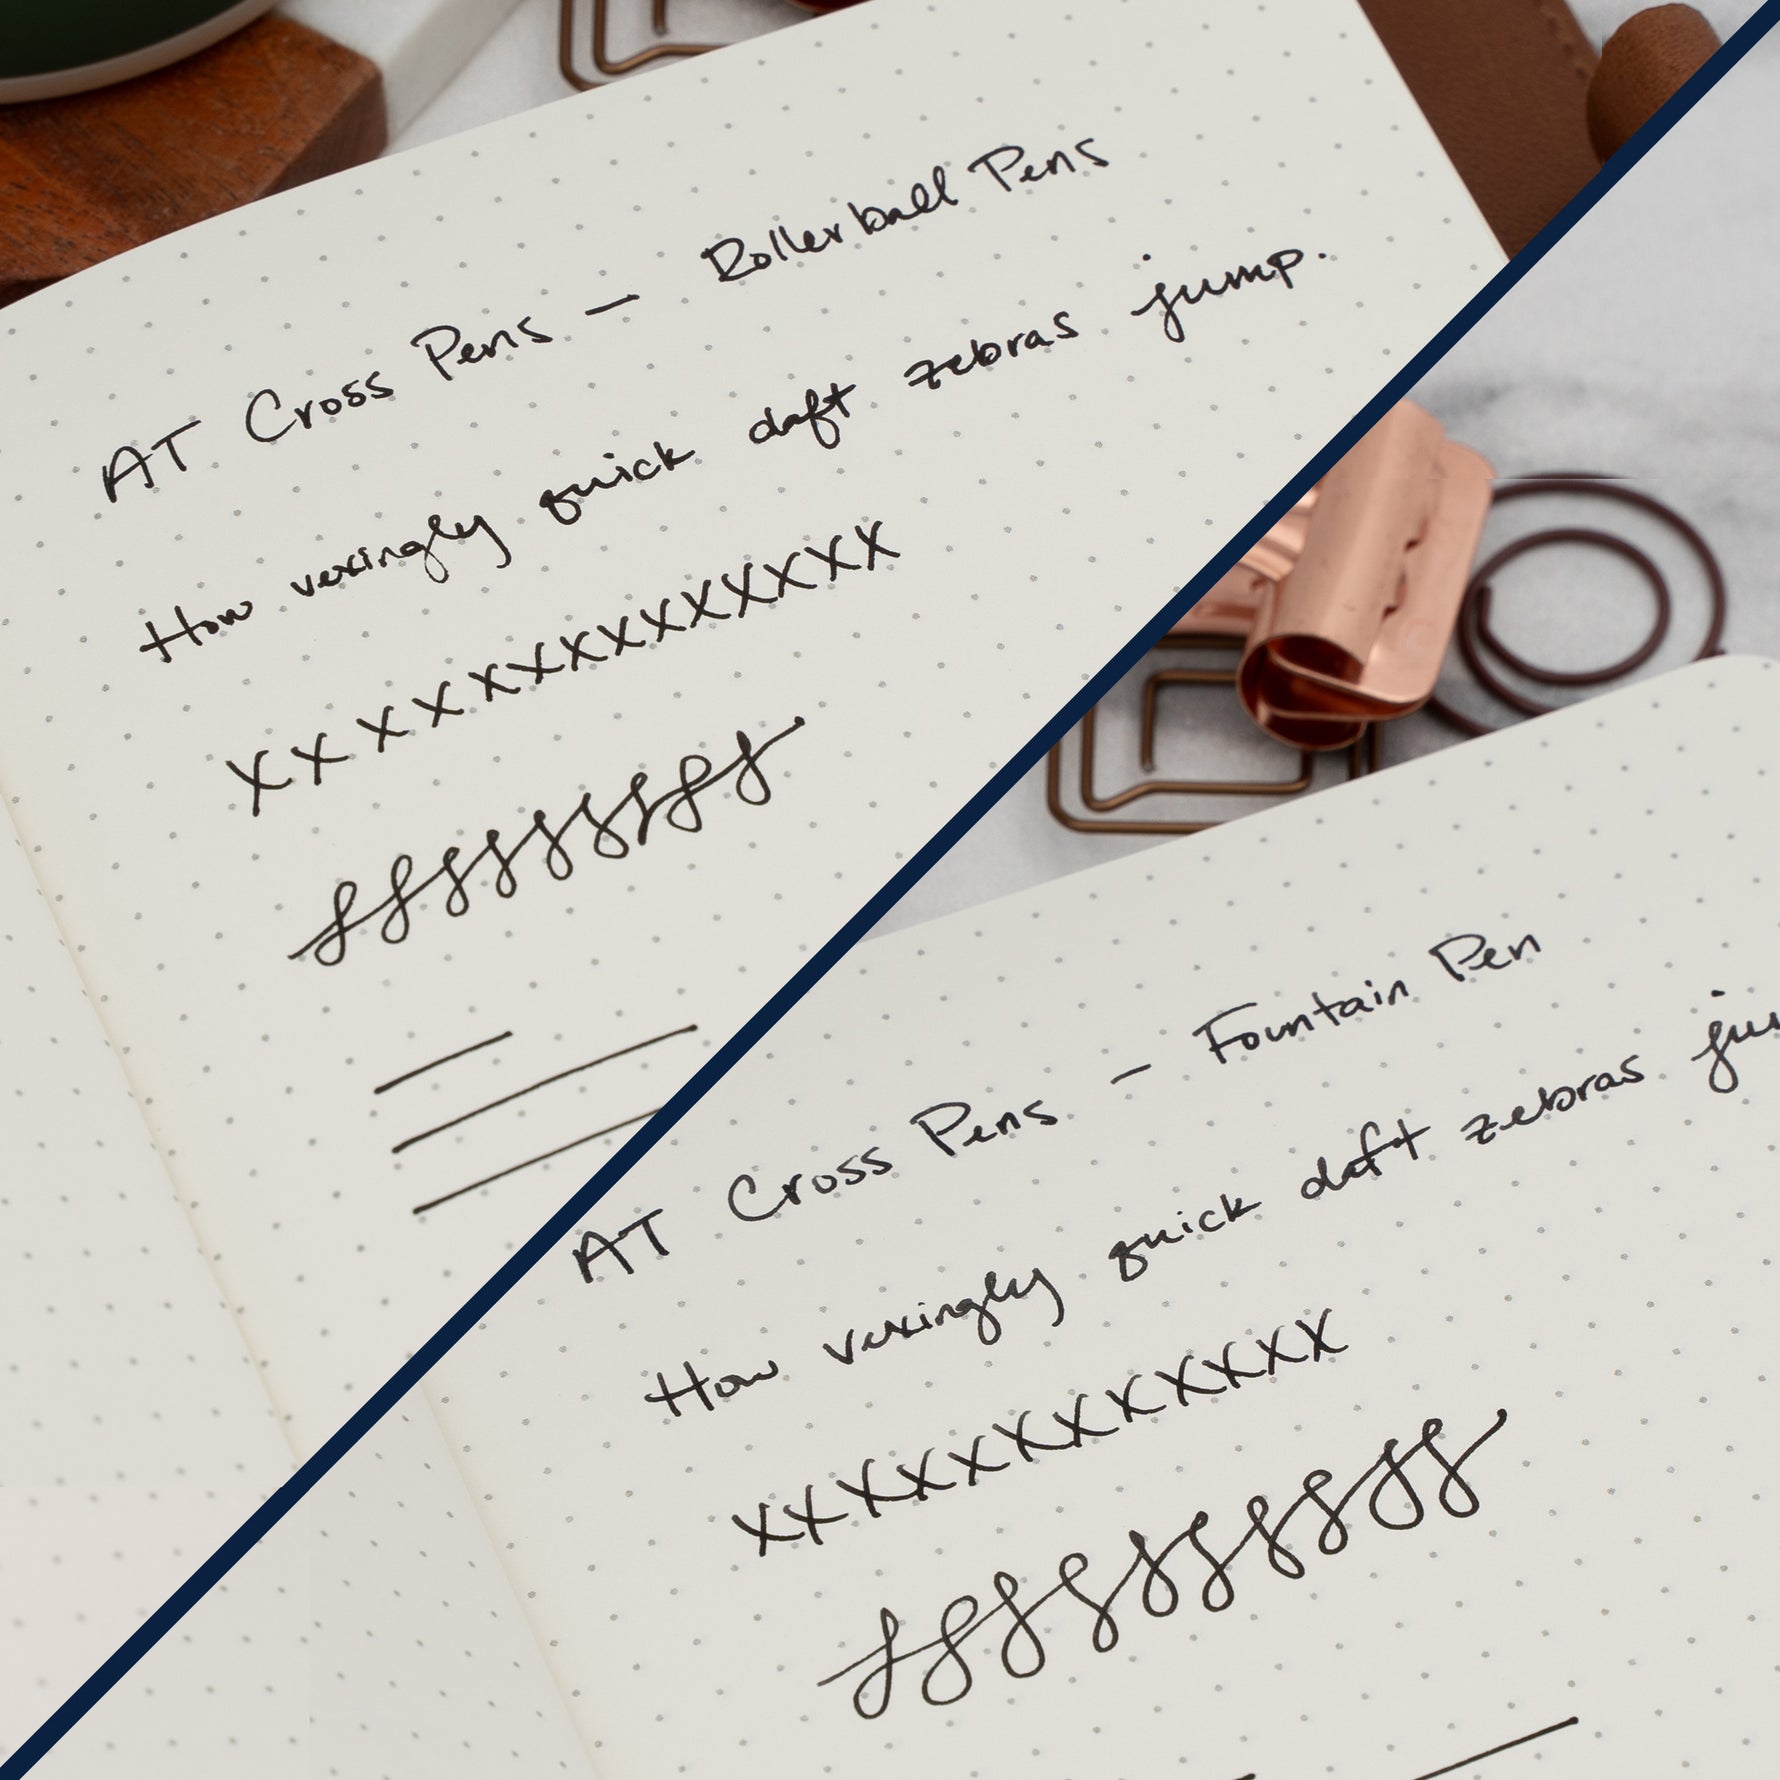 AT Cross Pens — Rollerball Pens
How vexingly quick daft zebras jump.
XXXXXXXXXXXX
AT Cross Pens — Fountain Pen
How vexingly quick daft zebras ju
XXXXXXXXXXX